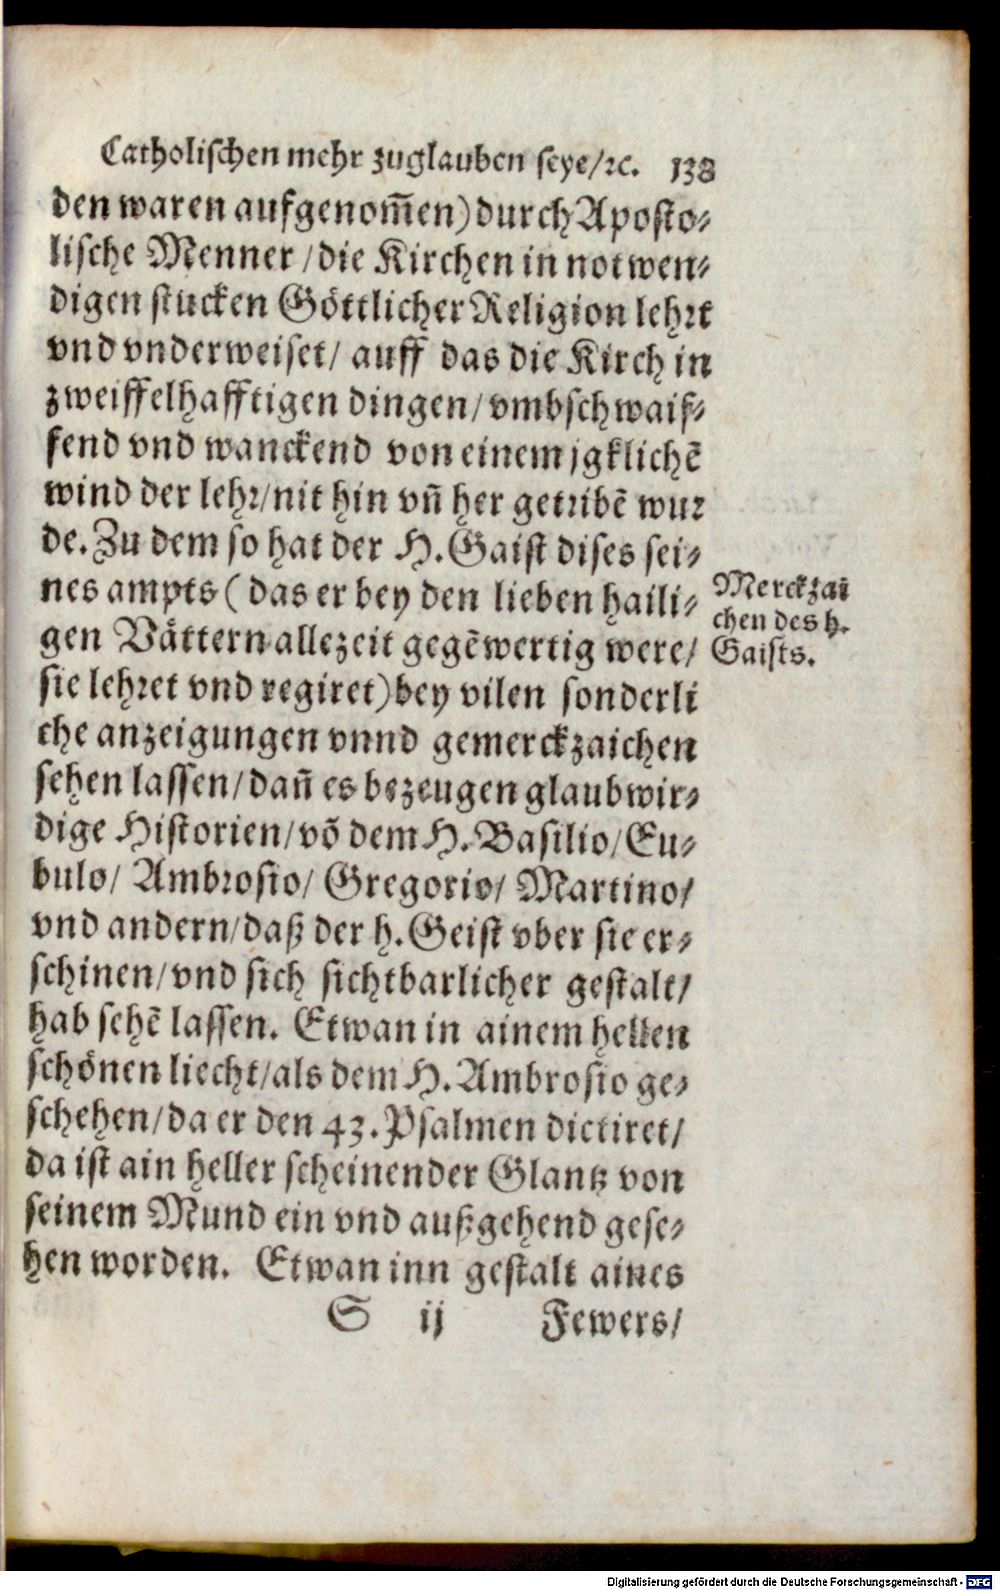 Catholischen mehr zuglauben seye/ꝛc. 138
den waren aufgenom̃en) durch Aposto⸗
lische Menner/die Kirchen in notwen⸗
digen stucken Göttlicher Religion lehrt
vnd vnderweiset/ auff das die Kirch in
zweiffelhafftigen dingen/vmbschwaif⸗
fend vnd wanckend von einem jgklichẽ
wind der lehr/nit hin vñ her getribẽ wur
de. Zu dem so hat der H. Gaist dises sei⸗
nes ampts (das er bey den lieben haili⸗
gen Vättern allezeit gegẽwertig were/
sie lehret vnd regiret) bey vilen sonderli
che anzeigungen vnnd gemerckzaichen
sehen lassen/dañ es bezeugen glaubwir⸗
dige Historien/võ dem H. Basilio/Eu⸗
bulo/ Ambrosio/ Gregorio/ Martino/
vnd andern/daß der h. Geist vber sie er⸗
schinen/vnd sich sichtbarlicher gestalt/
hab sehẽ lassen. Etwan in ainem hellen
schönen liecht/als dem H. Ambrosio ge⸗
schehen/da er den 43. Psalmen dictiret/
da ist ain heller scheinender Glantz von
seinem Mund ein vnd außgehend gese⸗
hen worden. Etwan inn gestalt aines
S ij Fewers/
Merckzai
chen des h.
Gaists.
Digitalisierung gefördert durch die Deutsche Forschungsgemeinschaft - DFG